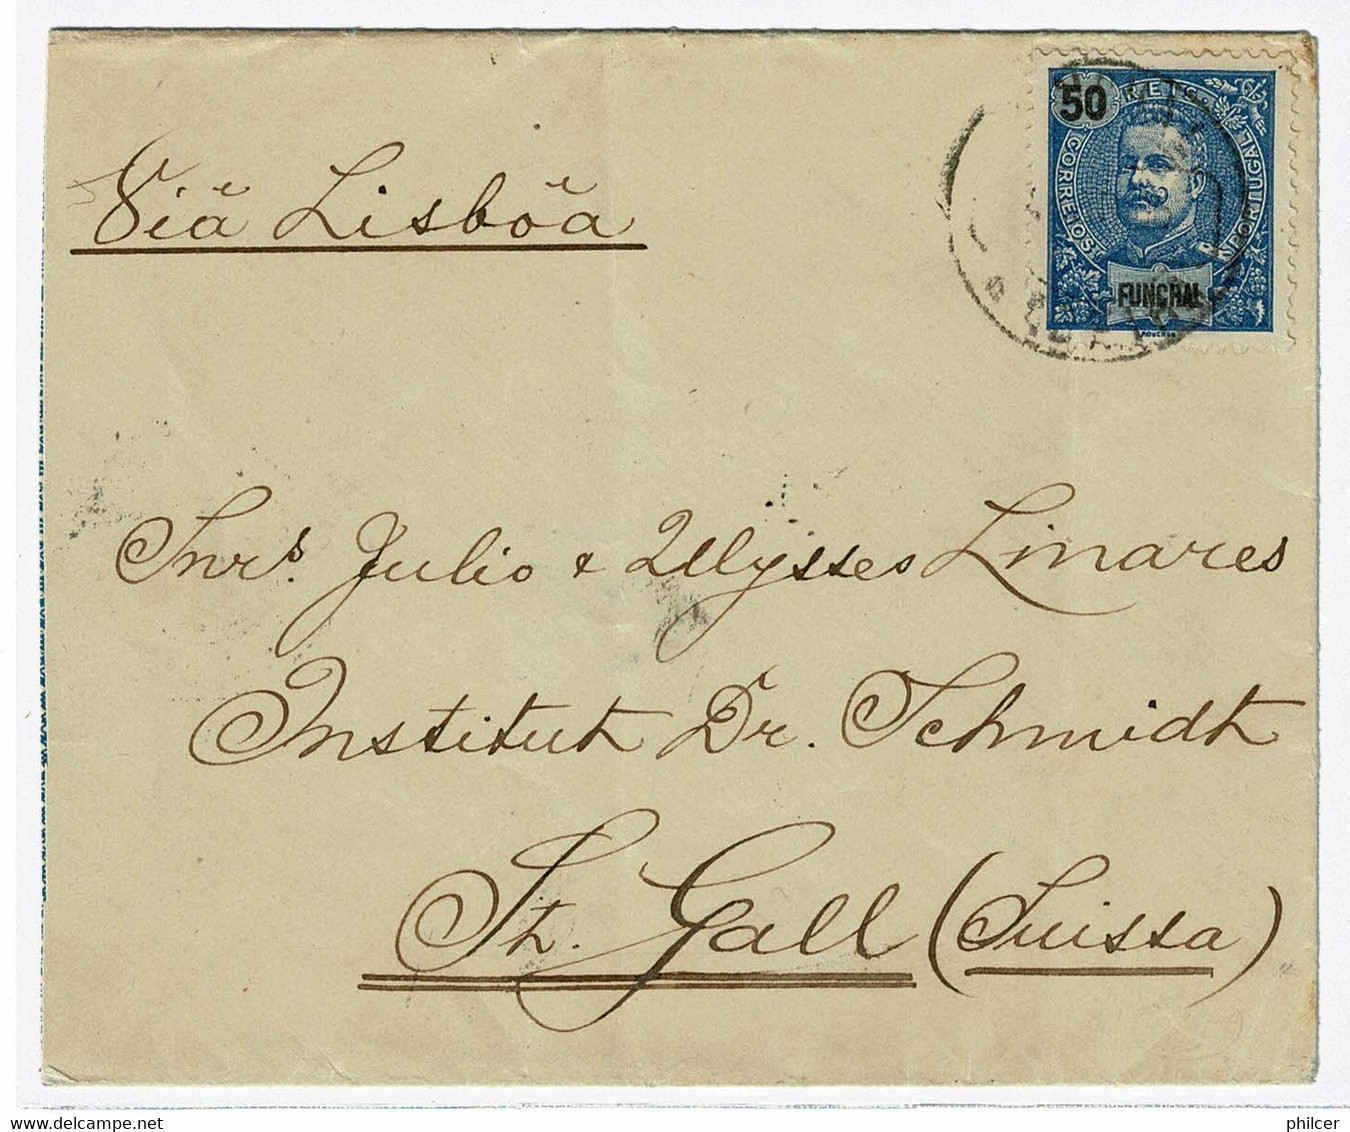 Viă Lisbŏa
50
REIS
CORREIOS
PORTUGAL
FUNCHAL
Snrs. Julio & Ulysses Linares
Institut Dr. Schmidt
St. Gall (Suissa)
www.delcampe.net
philcer